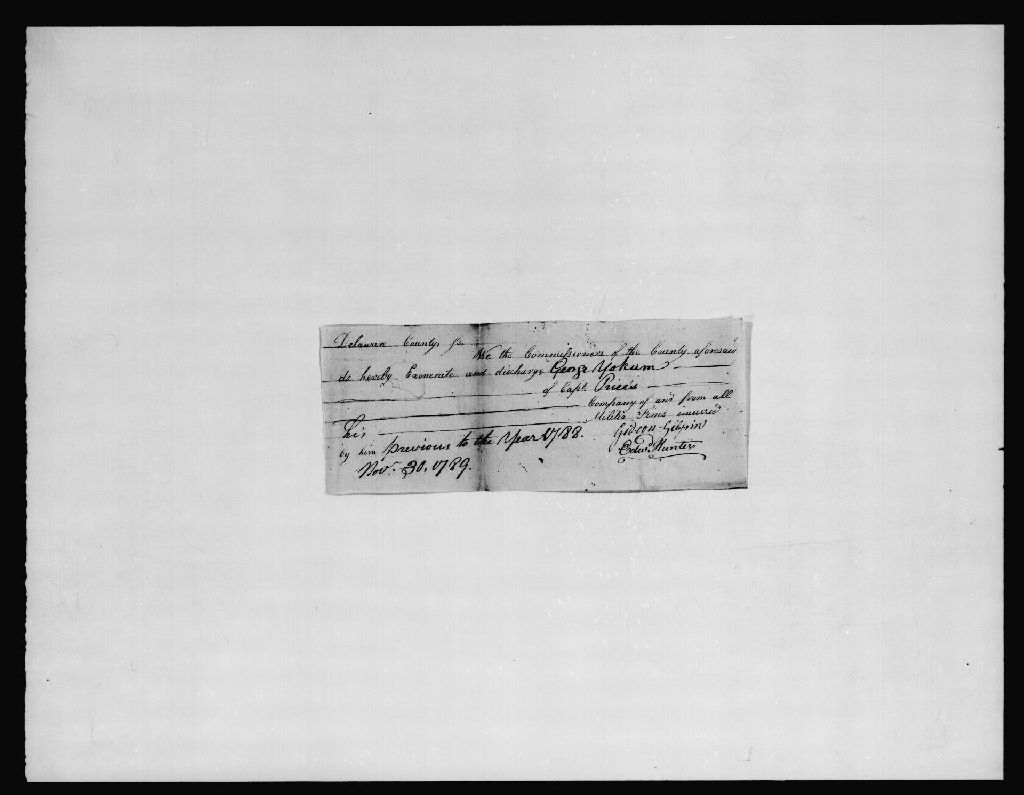 Delaware County ss
We the Commissioners of the County aforesaid
do hereby Exonerate and discharge George Yokum
of Capt. Price's
Company of and from all
his Militia Fines incurred
by him previous to the Year 1788.
Nov. 30, 1789.
Gideon Gilpin
Edwd. Hunter